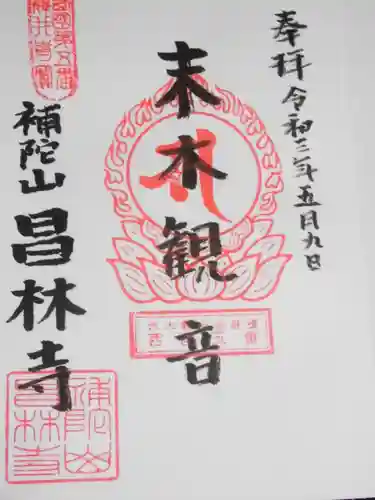 奉拝 令和三年五月九日
末木観音
補陀山 昌林寺
補陀山昌林寺